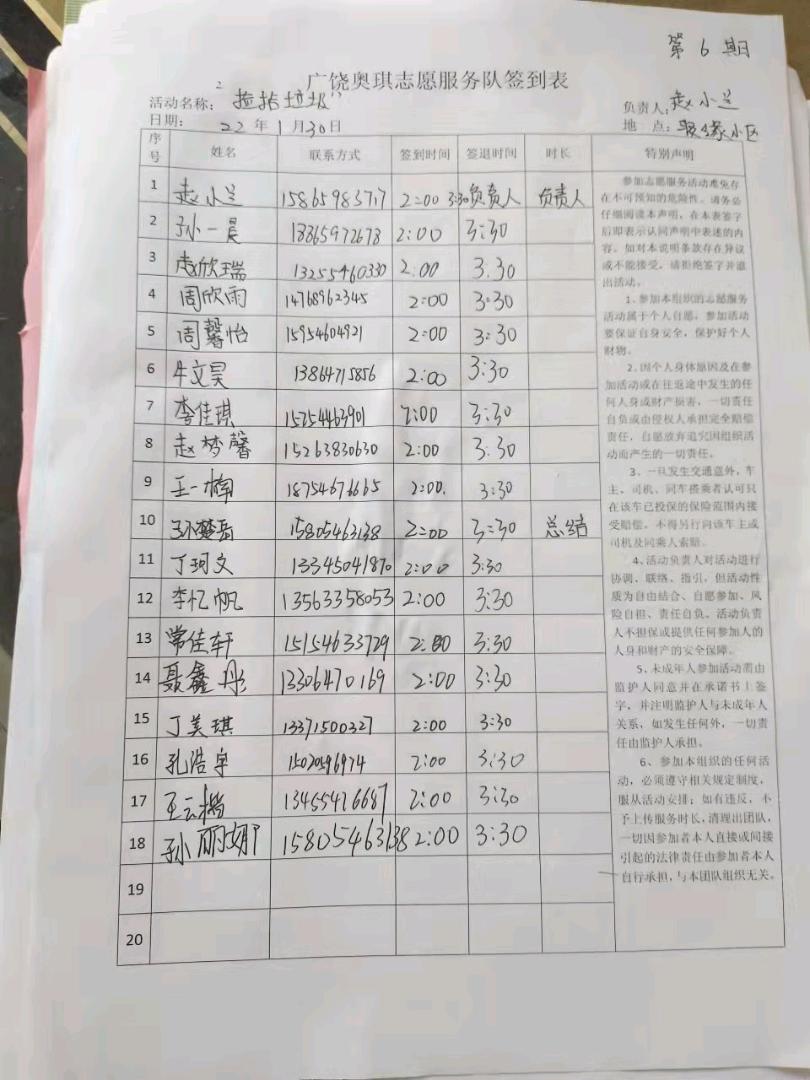 第 6 期
广饶奥琪志愿服务队签到表
活动名称: 捡拾垃圾
负责人: 赵小兰
日期: 22年1月30日
地 点: 聚缘小区
序号 姓名 联系方式 签到时间 签退时间 时长 特别声明
1 赵小兰 15865983717 2:00 3:30负责人 负责人
2 孙一晨 18865972678 2:00 3:30
3 赵欣瑞 13255460330 2:00 3:30
4 周欣雨 14768962345 2:00 3:30
5 周馨怡 15954604921 2:00 3:30
6 牛文昊 13864715856 2:00 3:30
7 李佳琪 15254463901 2:00 3:30
8 赵梦馨 15263830630 2:00 3:30
9 王一楠 18754676665 2:00. 3:30
10 孙楚岳 15805463138 2:00 3:30 总结
11 丁珂文 13345041870 2:00 3:30
12 李忆帆 13563358053 2:00 3:30
13 常佳轩 15154633729 2:00 3:30
14 聂鑫彤 13306470169 2:00 3:30
15 丁美琪 13371500327 2:00 3:30
16 孔浩宇 15020596974 2:00 3:30
17 王云楷 13455476687 2:00 3:30
18 孙丽娜 15805463138 2:00 3:30
19
20
参加志愿服务活动难免存
在不可预知的危险性。请务必
仔细阅读本声明，在本表签字
后即表示认同声明中表述的内
容。如对本说明条款存在异议
或不能接受，请拒绝签字并退
出活动。
1、参加本组织的志愿服务
活动属于个人自愿，参加活动
要保证自身安全，保护好个人
财物。
2、因个人身体原因及在参
加活动或在往返途中发生的任
何人身或财产损害，一切责任
自负或由侵权人承担完全赔偿
责任，自愿放弃追究因组织活
动而产生的一切责任。
3、一旦发生交通意外，车
主、司机、同车搭乘者认可只
在该车已投保的保险范围内接
受赔偿。不得另行向该车主或
司机及同乘人索赔。
4、活动负责人对活动进行
协调、联络、指引，但活动性
质为自由结合、自愿参加、风
险自担、责任自负。活动负责
人不担保或提供任何参加人的
人身和财产的安全保障。
5、未成年人参加活动需由
监护人同意并在承诺书上签
字，并注明监护人与未成年人
关系，如发生任何外，一切责
任由监护人承担。
6、参加本组织的任何活
动，必须遵守相关规定制度，
服从活动安排；如有违反，不
予上传服务时长，清理出团队，
一切因参加者本人直接或间接
引起的法律责任由参加者本人
自行承担，与本团队组织无关。